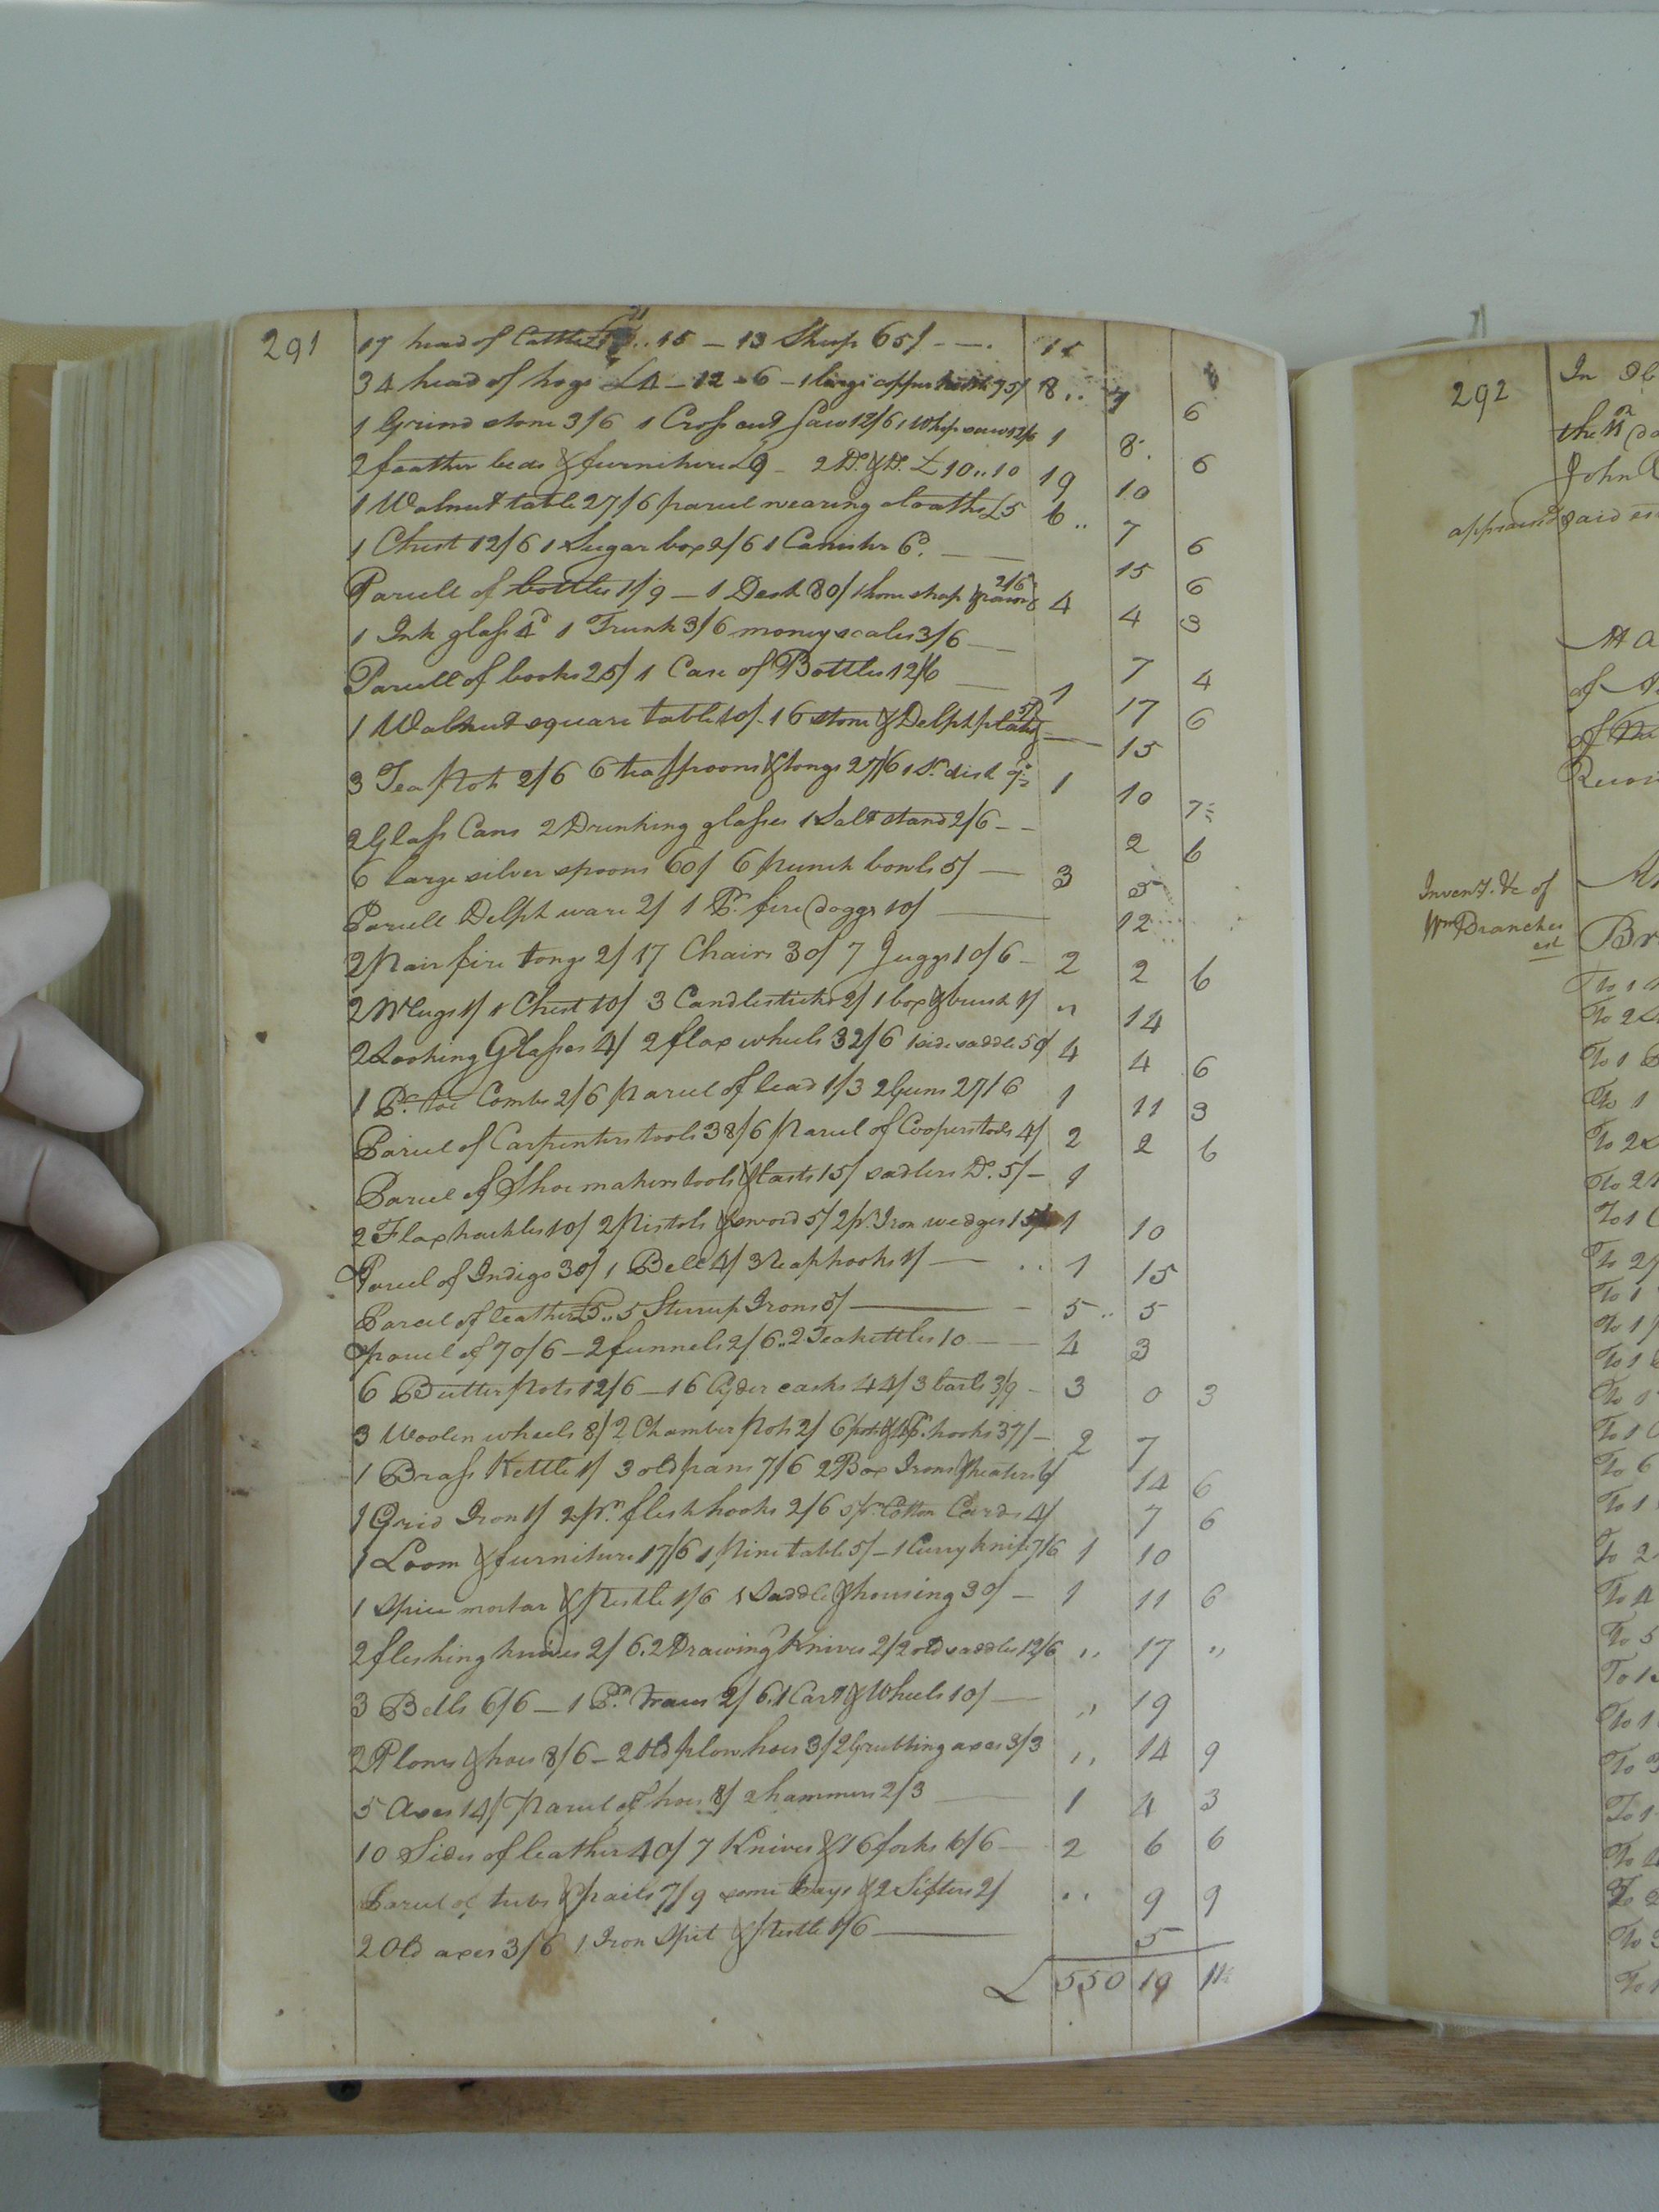 291
17 head of Cattle £11..15 – 13 Sheep 65/ – – 15
34 head of hogs £4 – 12 – 6 – 1 large copper kettle 75/ 8.. 7 6
1 Grind stone 3/6 1 Cross cut Saw 12/6 1 Whip saw 12/6 1 8 6
2 feather beds & furniture £9 – 2 Do. & Do. £10..10 19 10
1 Walnut table 27/6 parcel wearing cloaths £5 6.. 7 6
1 Chest 12/6 1 Sugar box 2/6 1 Canister 6d. 15 6
Parcell of bottles 1/9 – 1 Desk 80/ 1 hone strap & razors 2/6 4 4 3
1 Ink glass 4d 1 Trunk 3/6 money scales 3/6 7 4
Parcell of books 25/ 1 Case of Bottles 12/6 1 17 6
1 Walnut square table 10/. 16 stone & Delph plates 5/ 15
3 Tea Pots 2/6 6 tea spoons & tongs 27/6 1 Do. dish 7½ 1 10 7½
2 Glass Cans 2 Drinking glasses 1 Salt stand 2/6 – – 2 6
6 large silver spoons 60/ 6 punch bowls 5/ 3 5
Parcell Delph ware 2/ 1 Pr. fire doggs 10/ 12
2 Pair fire tongs 2/ 17 Chairs 30/ 7 Juggs 10/6 – 2 2 6
2 Mugs 1/ 1 Chest 10/ 3 Candlesticks 2/ 1 box & brush 1/ " 14
2 Looking Glasses 4/ 2 flax wheels 32/6 1 side saddle 50/ 4 4 6
1 Pr. toe Combs 2/6 Parcel of lead 1/3 2 Guns 27/6 1 11 3
Parcel of Carpenters tools 38/6 Parcel of Coopers tools 4/ 2 2 6
Parcel of Shoemakers tools & lasts 15/ sadlers Do. 5/ – 1
2 Flax hackles 10/ 2 Pistols & sword 5/ 2 pr. Iron wedges 15/ 1 10
Parcel of Indigo 30/ 1 Bell 4/ 3 reap hooks 1/ – .. 1 15
Parcel of leather £5.. 5 Sturrup Irons 5/ – 5.. 5
parcel of 70/6 – 2 funnels 2/6.. 2 Tea kettles 10 – – 4 3
6 Butter Pots 12/6 – 16 Cyder casks 44/ 3 barls 3/9 – 3 0 3
3 Woolen wheels 8/ 2 Chamber Pots 2/ 6 pots & 4 Pr. hooks 37/ – 2 7
1 Brass Kettle 1/ 3 old pans 7/6 2 Box Irons & heaters 6/ 14 6
1 Grid Iron 1/ 2 Pr. flesh hooks 2/6 5 pr. Cotton Cards 4/ 7 6
1 Loom & furniture 17/6 1 Pine table 5/ – 1 Curry knife 7/6 1 10
1 Spice mortar & Pestle 1/6 1 Saddle & housing 30/ – 1 11 6
2 fleshing knives 2/6. 2 Drawing Knives 2/ 2 old saddles 12/6 " 17 "
3 Bells 6/6 – 1 Pr. traces 2/6. 1 Cart & Wheels 10/ – " 19
2 Plows & hoes 8/6 – 2 old plow hoes 3/ 2 Grubbing axes 3/3 " 14 9
5 Axes 14/ Parcel of hoes 8/ 2 hammers 2/3 1 4 3
10 Sides of leather 40/ 7 Knives & 16 forks 6/6 – 2 6 6
Parcel of tubs & pails 7/9 some trays & 2 Sifters 2/ .. 9 9
2 Old axes 3/6 1 Iron Spit & Pestle 1/6 5
£ 550 19 11½
292
In Ob
the
John
appraised said es
At a
of
of
Invent. &c of
Wm Branches
est
Br
To 1
To 2
To 1 B
To 1
To 2
To 2
To 1
To 2
To 1
To 1
To 1
To 1
To 1
To 6
To 1
To 2
To 4
To 5
To 1
To 1
To 3
To 1
To 3